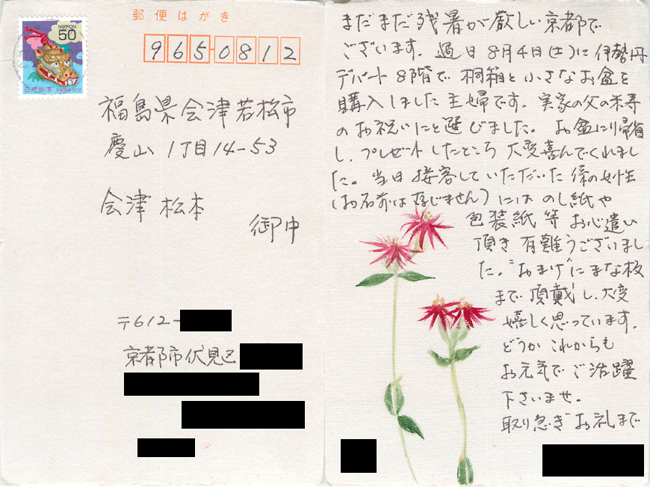 郵便はがき
NIPPON
50
965-0812
福島県会津若松市
慶山1丁目14-53
会津 松本
御中
〒612-
京都市伏見区
まだまだ残暑が厳しい京都で
ございます。過日8月4日(土)に伊勢丹
デパート8階で桐箱と小さなお盆を
購入しました主婦です。実家の父の米寿
のお祝いにと選びました。お盆に帰省
し、プレゼントしたところ大変喜んでくれまし
た。当日接客していただいた係の女性
(お名前は存じません)にはのし紙や
包装紙等お心遣い
頂き有難うございまし
た。"おまけ"にまな板
まで頂戴し、大変
嬉しく思っています。
どうかこれからも
お元気でご活躍
下さいませ。
取り急ぎお礼まで